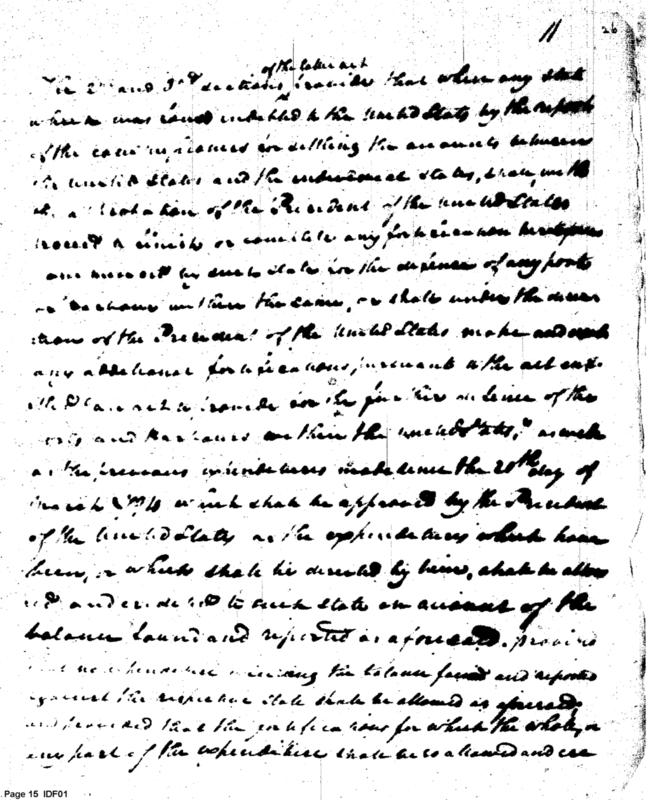 11
26
of the later act
The 2nd and 3rd sections provide that where any state
which was found indebted to the United States by the report
of the commissioners for settling the accounts between
the United States and the individual states, shall, with
the approbation of the President of the United States
proceed to finish or complete any fortification heretofore
commenced by such state for the defence of any ports
or harbours within the same, or shall under the direc
tion of the President of the United States make and
any additional fortifications, pursuant to the act enti
tled "an act to provide for the further defence of the
ports and harbours within the United States," as well
as the previous expenditures made since the 20th day of
March 1794 which shall be approved by the President
of the United States as the expenditures which have
been, or which shall be directed by him, shall be allow
ed and credited to such state on account of the
balance found and reported as aforesaid. provided
that no expenditure exceeding the balance found and reported
against the respective state shall be allowed as aforesaid
and provided that the fortifications for which the whole, or
any part of the expenditure shall be so allowed and cre
Page 15 IDF01